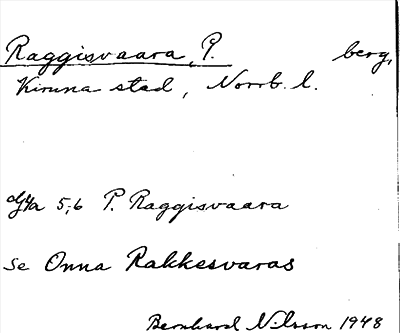 Raggisvaara, P. berg,
Kiruna stad, Norrb. l.
5;6 P. Raggisvaara
se Onna Rakkesvaras
Bernhard Nilsson 1948